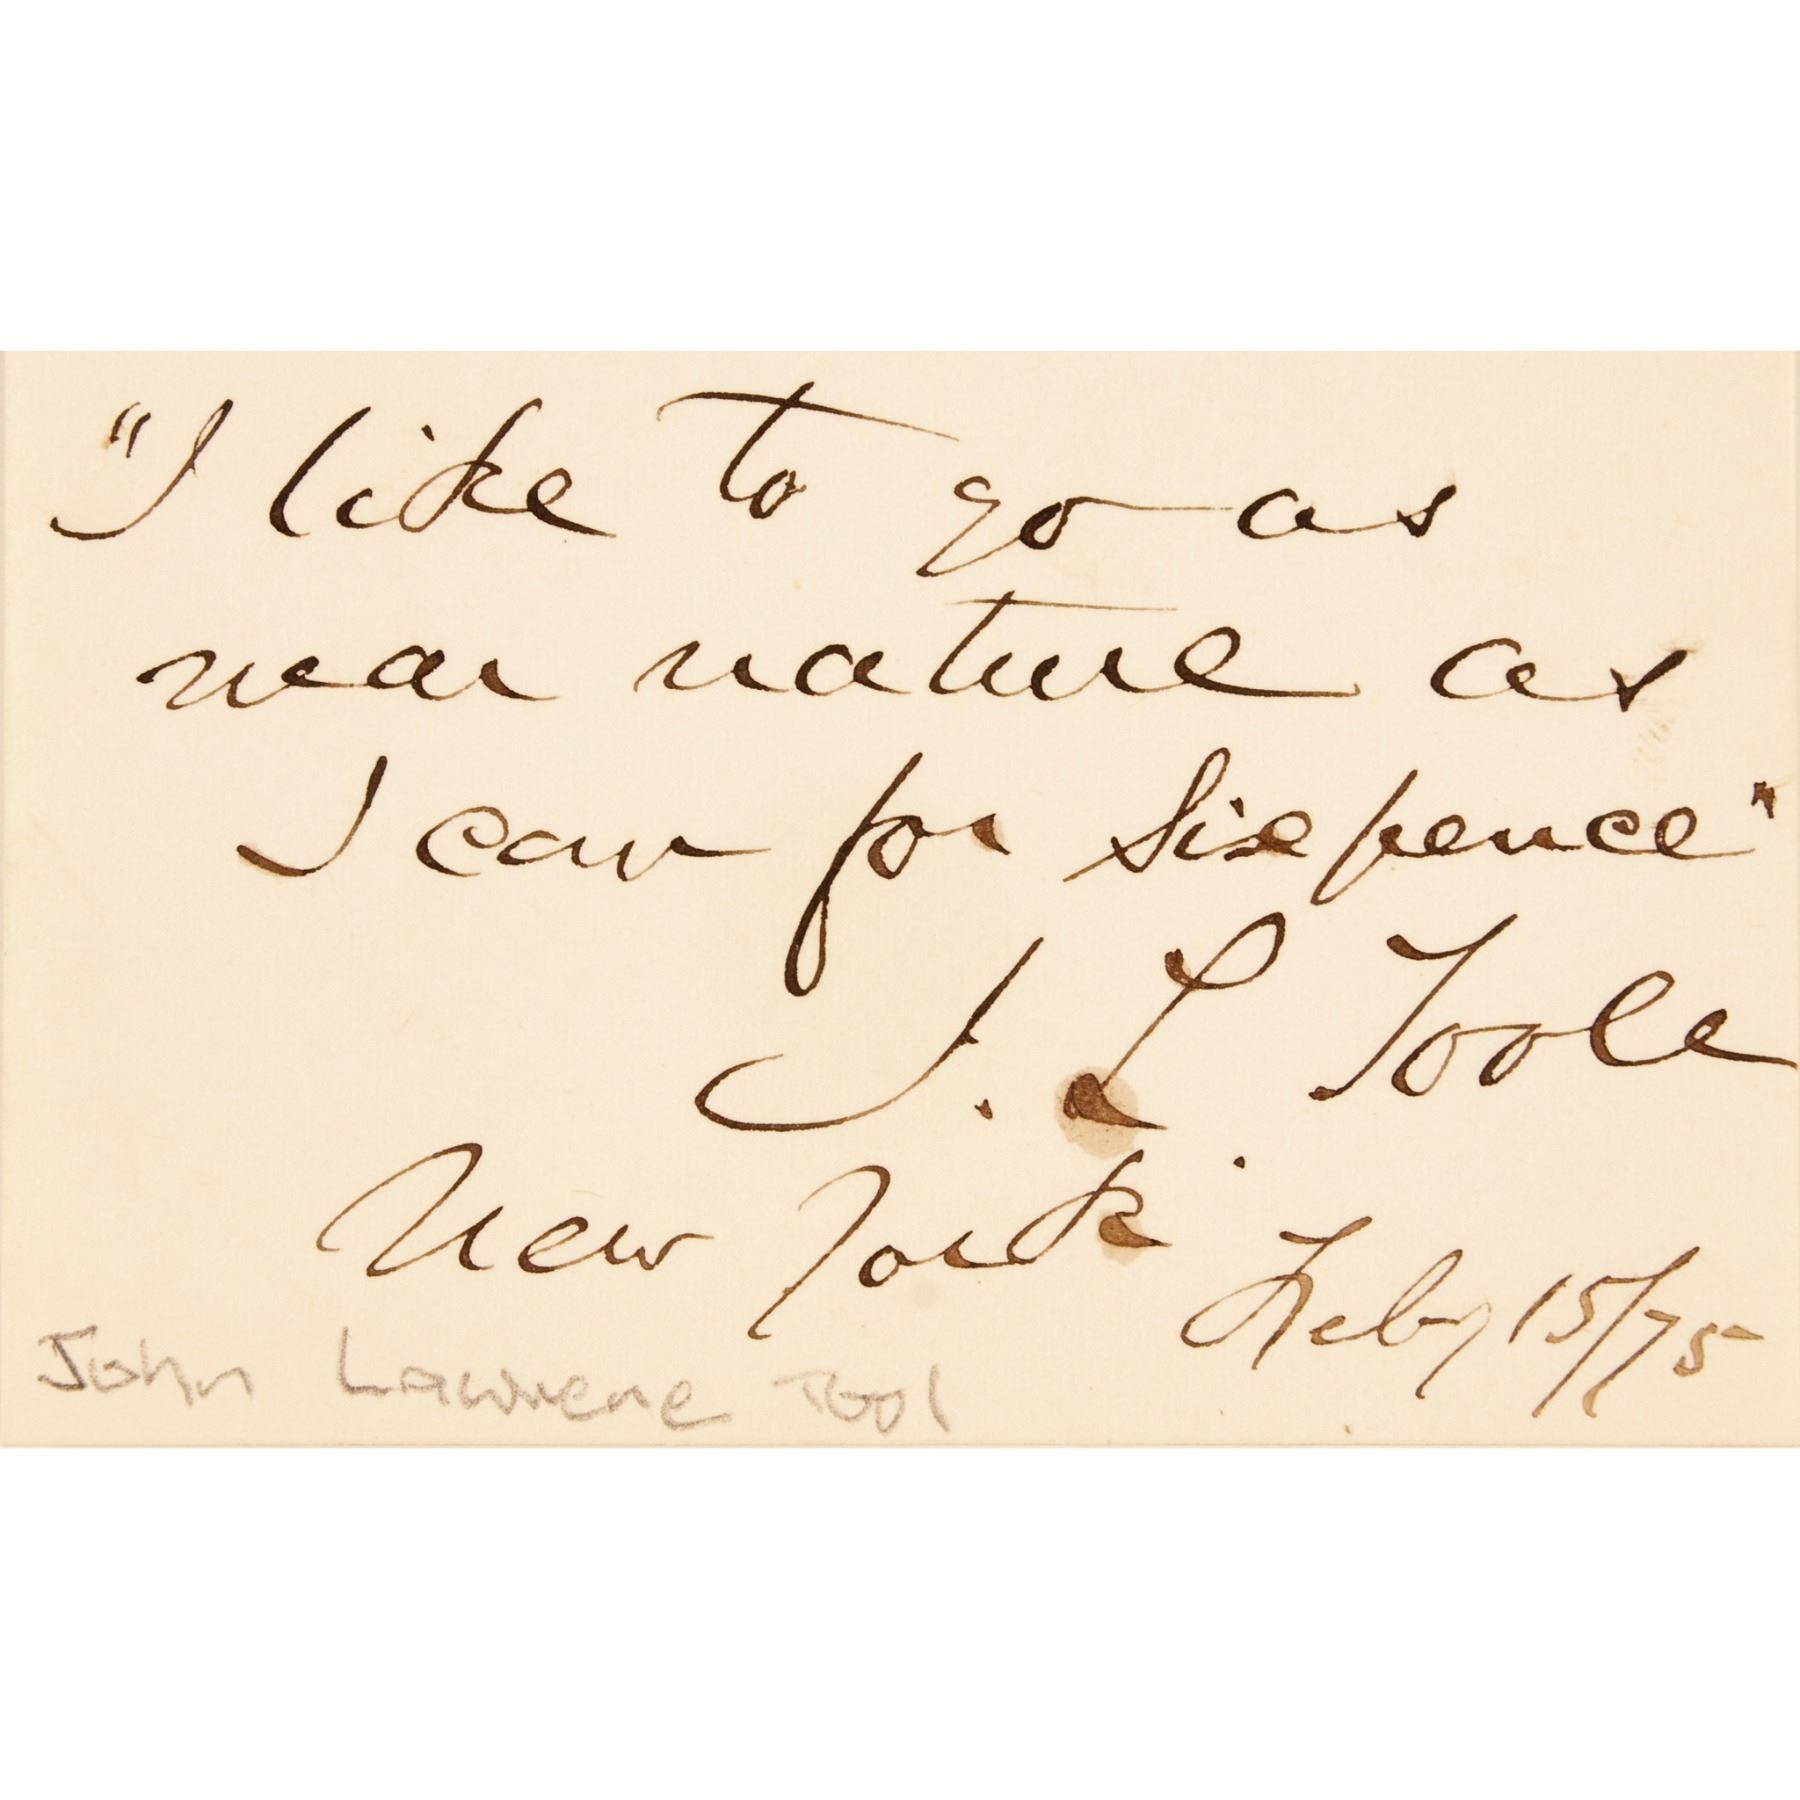 "I like to go as
near nature as
I can for Sixpence"
J. L Toole
New York.
Feby 15/75
John Lawrene Tool